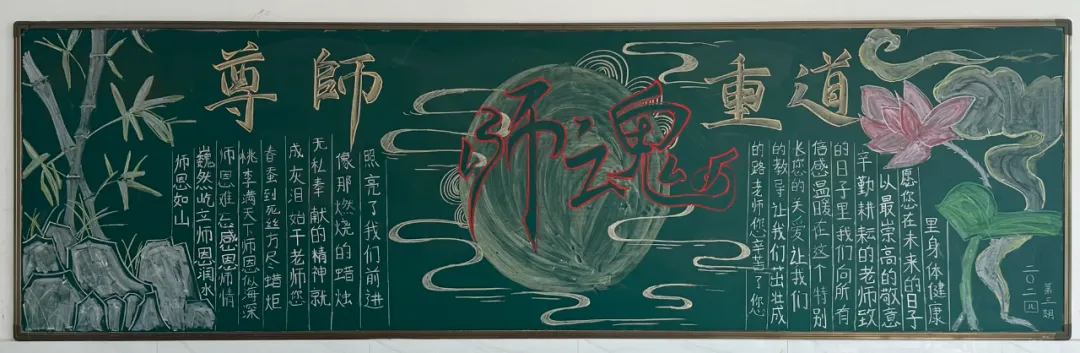 尊師
师魂
重道
师恩如山
巍然屹立师恩润水
师恩难忘感恩师情
桃李满天下师恩似海深
春蚕到死丝方尽蜡炬
成灰泪始干老师您
无私奉献的精神就
像那燃烧的蜡烛
照亮了我们前进
的路老师您辛苦了您
的教导让我们茁壮成
长您的关爱让我们
倍感温暖在这个特别
的日子里我们向所有
辛勤耕耘的老师致
以最崇高的敬意
愿您在未来的日子
里身体健康
二〇二四
第三期